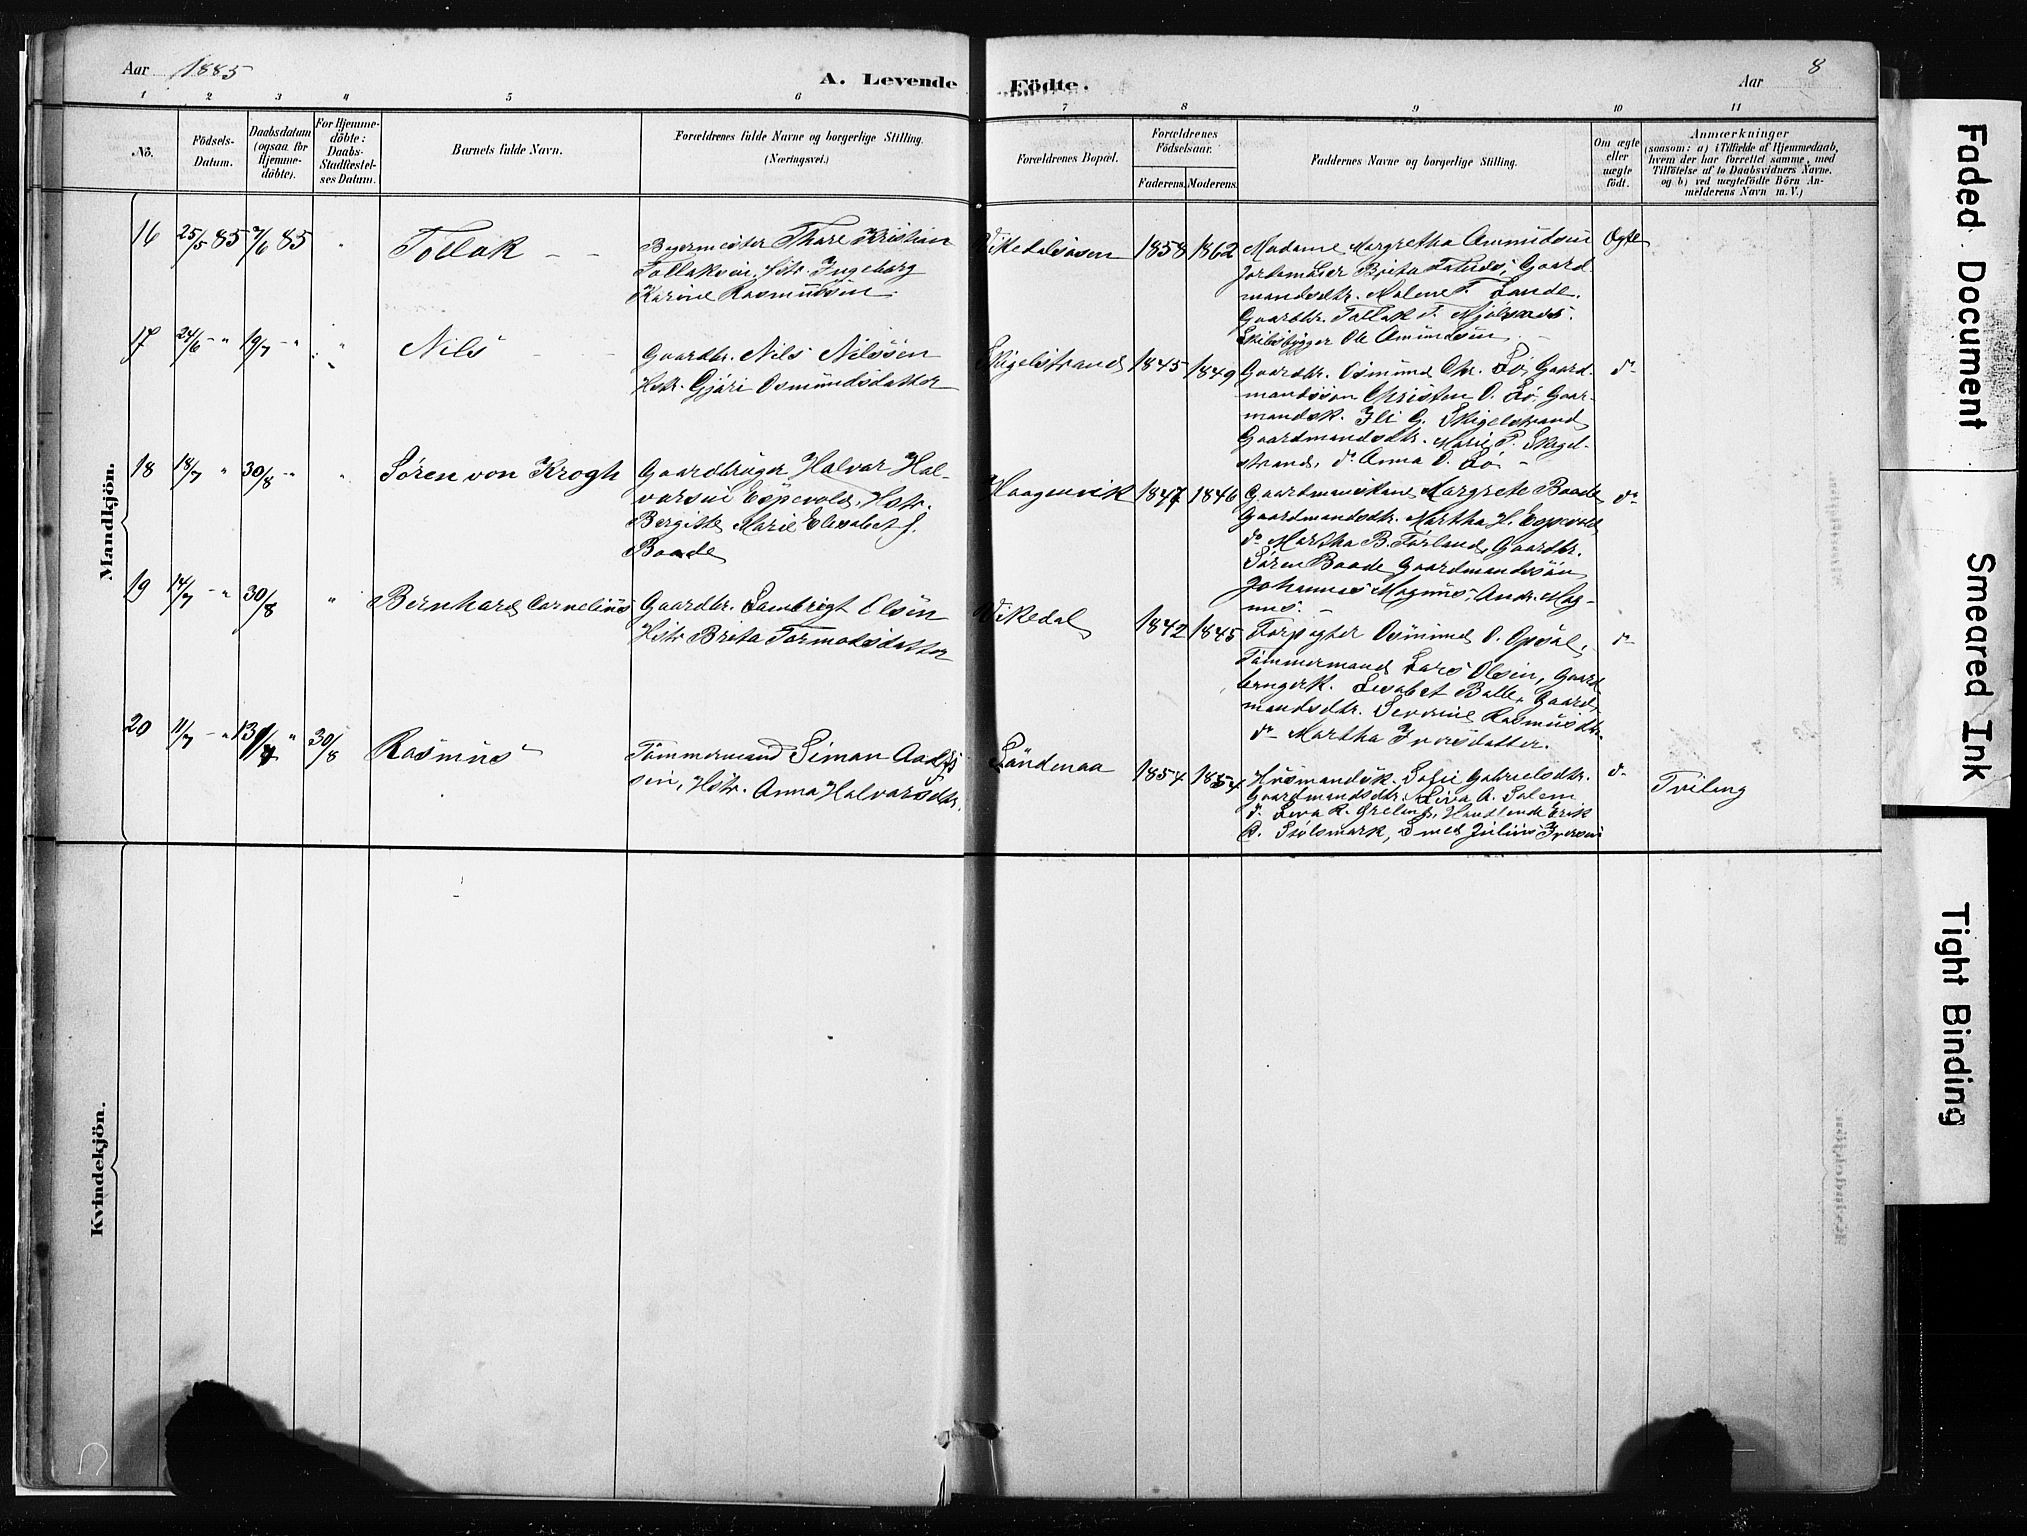 Aar 1885
A. Levende Födte.
Aar 8
1 2 3 4 5 6 7 8 9 10 11
No.
Födsels-
Datum.
Daabsdatum
(ogsaa for
Hjemme-
döbte).
For Hjemme-
döbte:
Daabs-
Stadfæstel-
ses Datum.
Barnets fulde Navn.
Forældrenes fulde Navne og borgerlige Stilling.
(Næringsvei.)
Forældrenes Bopæl.
Forældrenes
Födselsaar.
Faderens. Moderens.
Faddernes Navne og borgerlige Stilling.
Om ægte
eller
uægte
født.
Anmærkninger
(saasom: a) i Tilfælde af Hjemmedaab,
hvem der har forrettet samme, med
Tilføielse af to Daabsvidners Navne.
og b) ved uægtefödte Börn An-
melderens Navn m. V.)
Mandkjön.
16 25/5 85 7/6 85 " Tollak - -
Bagermester Thore Kristian
Tollaksen, Hstr. Ingeborg
Karine Rasmusen.
Vikedalsosen 1858 1862
Madame Margretha Amundsen
Jordemoder Brita Galtnes, Gaard
mandsdtr. Malene T. Lande.
Gaardbr. Tollak T. Mjølsnes.
Skibsbygger Ole Amundsen
Ægte
17 24/6 - " 19/7 - " "
Nils - -
Gaardbr. Nils Nilssen
Hstr. Gjøri Osmundsdatter
Skigelstrand 1845 1849
Gaardbr. Osmund Chr. Lø, Gaard-
mandssøn Christen O. Lø, Gaar-
mandsk. Ili G. Skigelstrand
Gaardmandsdtr. Marie P. Skigel-
strand, do Anna O. Lø -
do
18 18/7 " 30/8 - " "
Søren von Krogh
Gaardbruger Halvar Hal-
varsen Espevold, Hstr.
Bergitte Marie Elisabet J.
Baade
Haagenvik 1847 1846
Gaardmandskone Margrete Baade
Gaardmandsdtr. Martha H. Espevold
do Martha B. Førland, Gaardbr.
Søren Baade Gaardmandssøn
Johannes Magnus, Andr. Mag-
nus. -
do
19 14/7 - " 30/8 "
Bernhard Cornelius
Gaardbr. Lambrigt Olsen
Hstr Brita Tormodsdatter
Vikedal 1842 1845
Forpagter Osmund O. Opsal,
Tømmermand Lars Olsen, Gaard
brugerk. Lisabet Balle, Gaard-
mandsdtr. Serrine Rasmusdtr.
do Martha Iversdatter.
do
20 11/7 - " 13/7 " 30/8
Rasmus
Tømmermand Simon Aadn
sen, Hstr. Anna Halvarsdtr.
Søndenaa 1854 1854
Husmandsk. Sofie Gabrielsdtr.
Gaardmandsdtr. Siva A. Salem
do Siva R. Øreling, Handlende Erik
C. Stølsmark, Smed Julius Iversen
do
Tviling
Kvindekjön.
Faded Document
Smeared Ink
Tight Binding